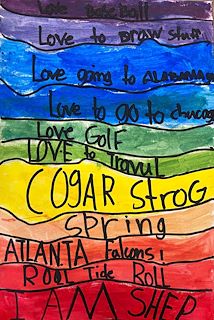 Love Base ball
Love to Draw stuff
Love going to ALABAMA
Love to go to chicago
Love GOLF
LOVE to Travul
COGAR StroG
Spring
ATLANTA Falcons!
ROOL Tide Roll
I AM SHEP